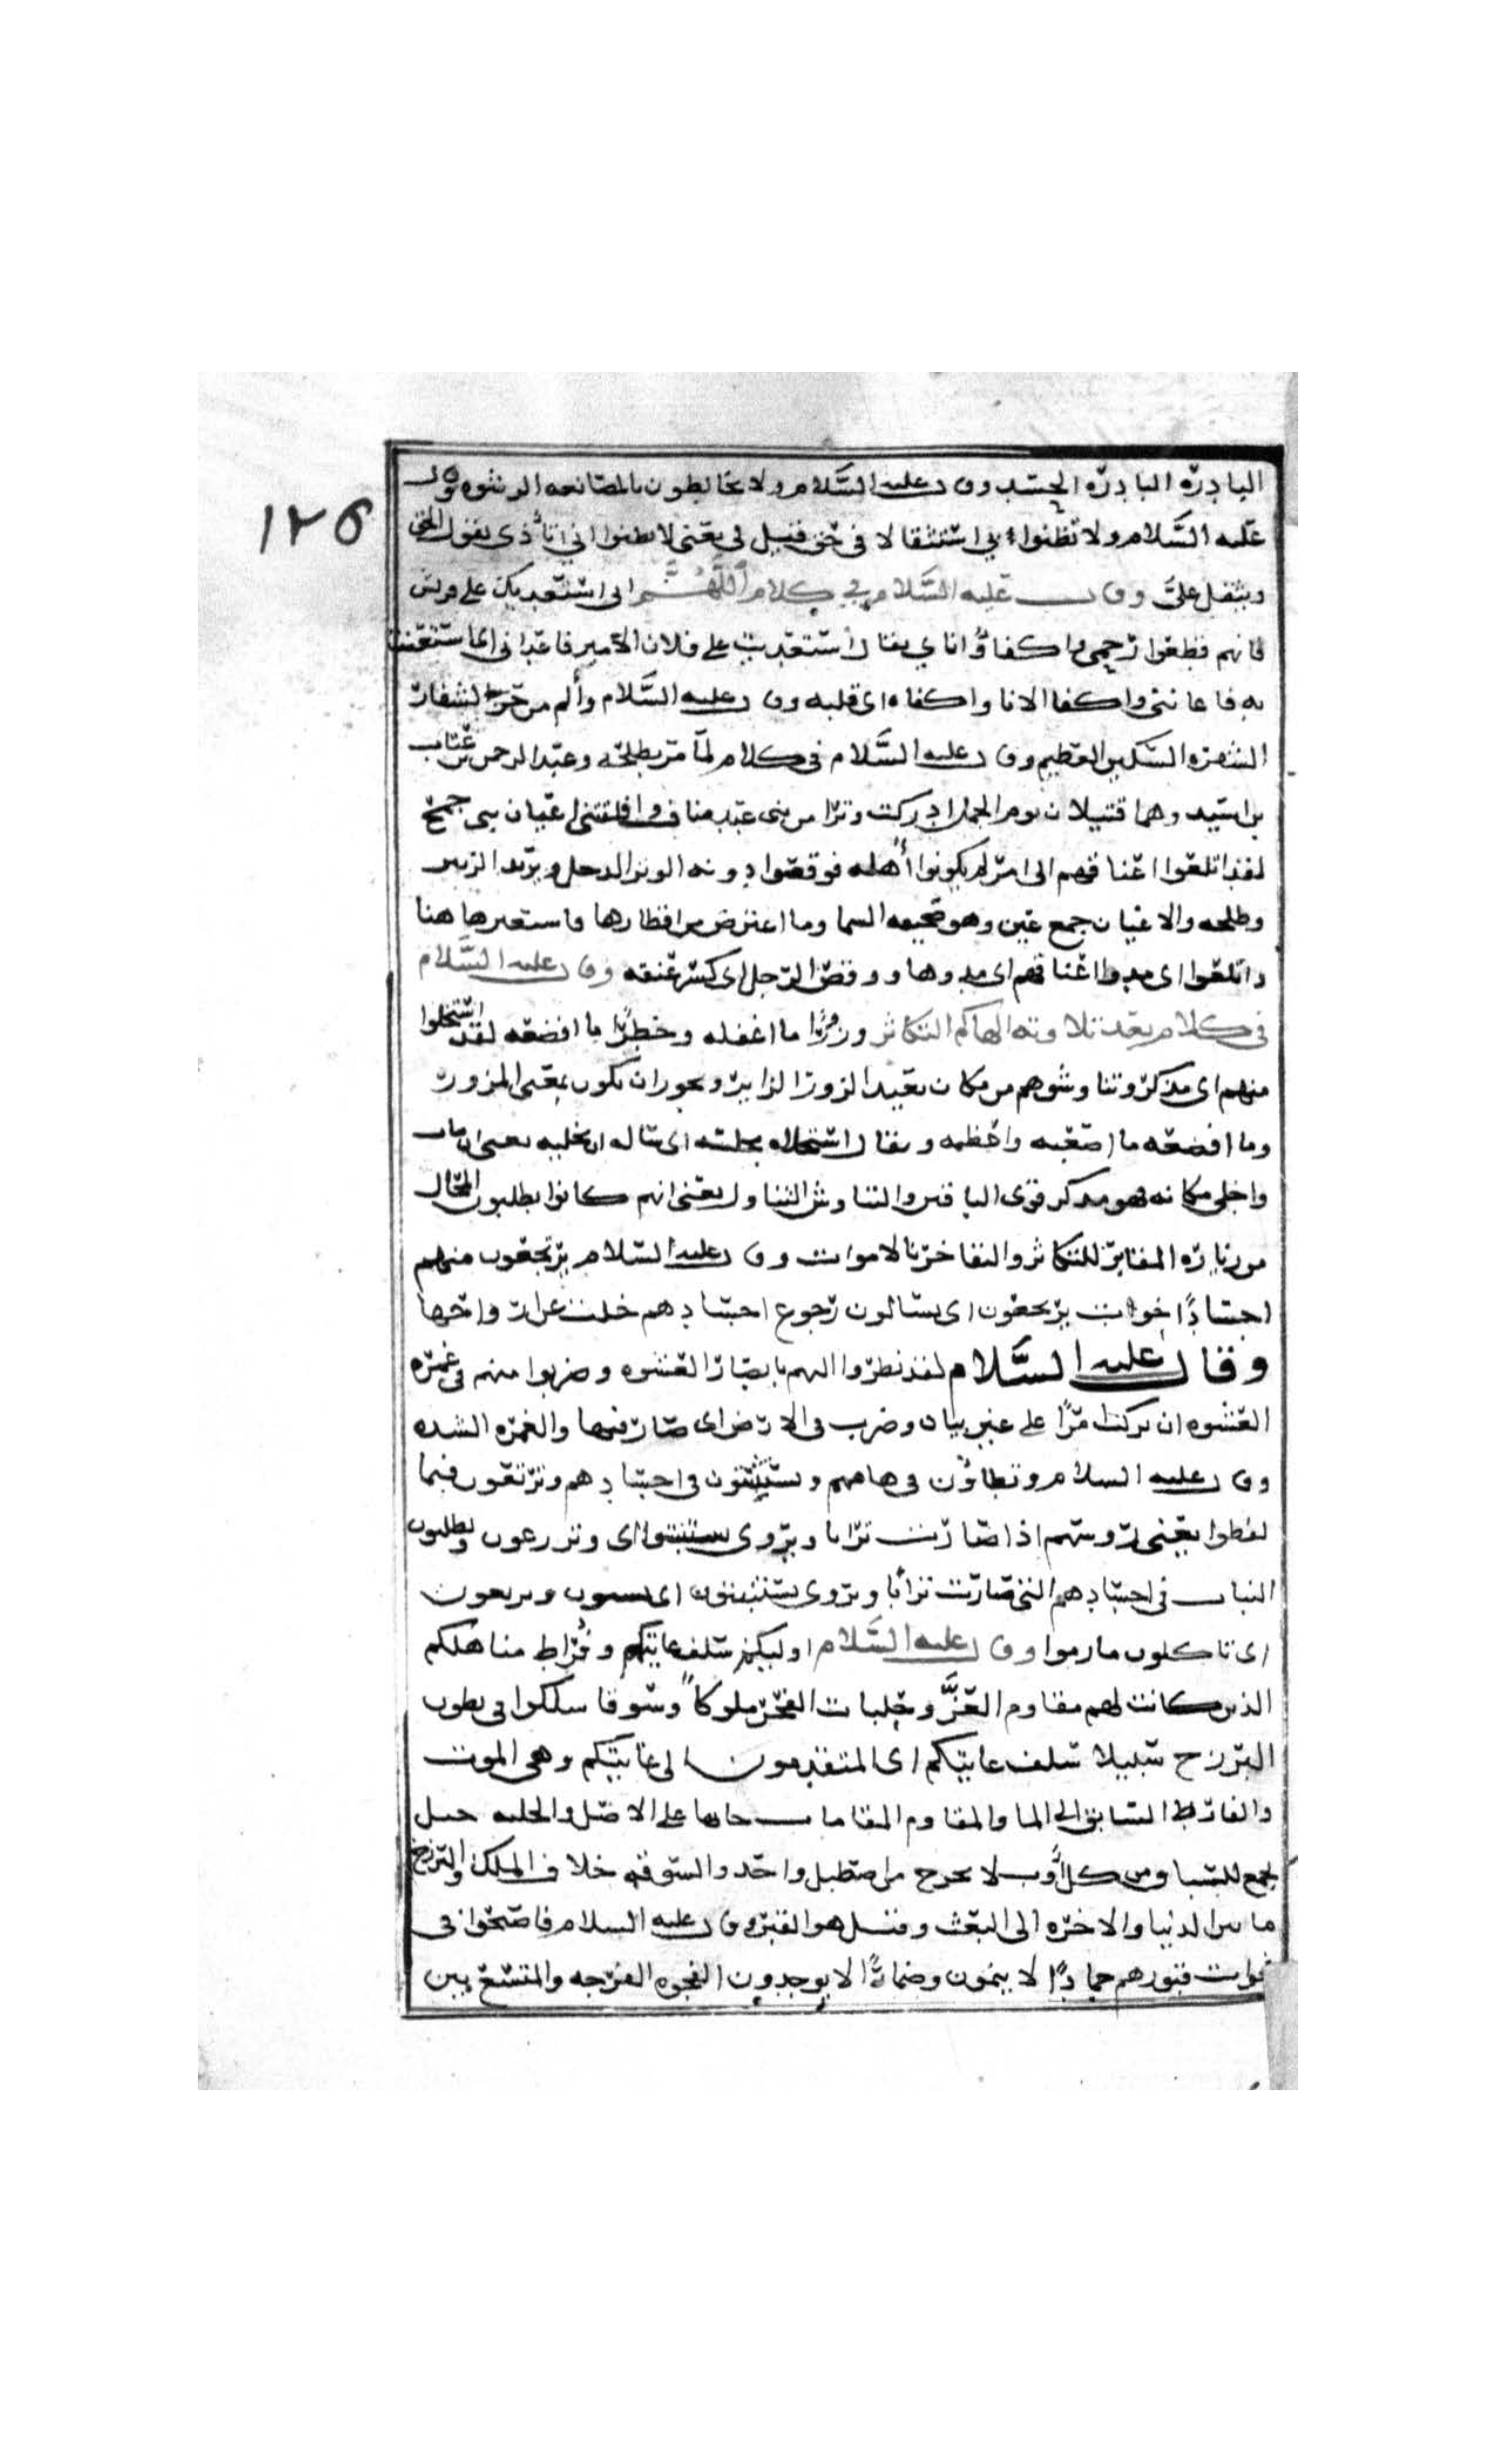 ١٢٥
البادرة البادرة الحسد وقال عليه السلام ولا تخالطون بالمصانعه الرشوه وقال
عليه السلام ولا تظنوا بي استثقالا في حق قيل لي يعني لا تظنوا اني اتأذى بقول الحق
ويثقل عليّ وقال عليه السلام في كلام اللهم اني استعديك على قريش
فانهم قطعوا رحمي واكفاؤا انايي يقال استعديت على فلان الامير فاعداني اي استعنت
به فاعانني واكفا الانا واكفاه اي قلبه وقال عليه السلام وآلم من حز الشفار
الشفرة السكين العظيم وقال عليه السلام في كلام لمّا مر بطلحة وعبد الرحمن بن عتاب
بن اسيد وهما قتيلان يوم الجمل ادركت وترا من بني عبد مناف وافلتتني اعيان بني جمح
لقد اتلعوا اعناقهم الى امر لم يكونوا أهله فوقصوا دونه الوتر الدحل ويريد الزبير
وطلحه والاعيان جمع عين وهو السما وما اعترض من اقطارها فاستعيرها هنا
واتلعوا اي مدوا اعناقهم اي مدوها ووقص الرجل اي كسر عنقه وقال عليه السلام
في كلام بعد تلاوته الهاكم التكاثر وزورًا ما اغفله وخطرًا ما افضعه لقد استخلوا
منهم اي مدكر وتناوشوهم من مكان بعيد الزور الزاير ويجوز ان يكون بمعنى المزور
وما افضعه ما اصعبه واعظمه ويقال استخلاه مجلسه اي ساله ان يخليه يعني ان مات
واخلى مكانه فهو مدكر قوى الباقين والتناوش التناول يعني انهم كانوا يطلبون المحال
من زيارة المقابر للتكاثر والتفاخر بالاموات وقال عليه السلام يرتجعون منهم
اجسادًا خوات يرتجعون اي يسالون رجوع اجسادهم خلت عن ارواحها
وقال عليه السلام لقد نظروا اليهم بابصار العشوه وضربوا منهم في غمرة
العشوه ان يركب امرًا على غير بيان وضرب في الارض اي صار فيها والغمره الشده
وقال عليه السلام وتطاؤن في هامهم وتستثبتون في اجسادهم وترتعون فيما
لفظوا يعني رؤسهم اذا صارت ترابا ويروى تستنبتون اي وتزرعون وتطلبون
النبات في اجسادهم التي صارت ترابًا ويروى تستثبتون اي وترتعون
اي تاكلون ما رموا وقال عليه السلام اوليكم سلف غايتكم وفُرّاط مناهلكم
الذين كانت لهم مقاوم العزّ وحلبات الفخر ملوكًا وسوقا سلكوا في بطون
البرزخ سبيلا سلف غايتكم اي المتقدمون الى غايتكم وهي الموت
والفارط السابق الى الما والمقاوم المقامات جا بها على الاصل والحلبه خيل
تجمع للسباق من كل أوب لا تخرج من اصطبل واحد والسوقه خلاف الملك والبرزخ
ما بين الدنيا والاخره الى البعث وقيل هو القبر وقال عليه السلام فاصبحوا في
فجوات قبورهم جمادًا لا ينمون وضمارًا لا يوجدون الفجوه الفرجه والمتسع بين